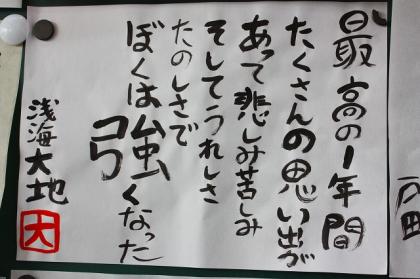 最高の1年間
たくさんの思い出が
あって悲しみ苦しみ
そしてうれしさ
たのしさで
ぼくは強くなった
浅海大地
大
戸田